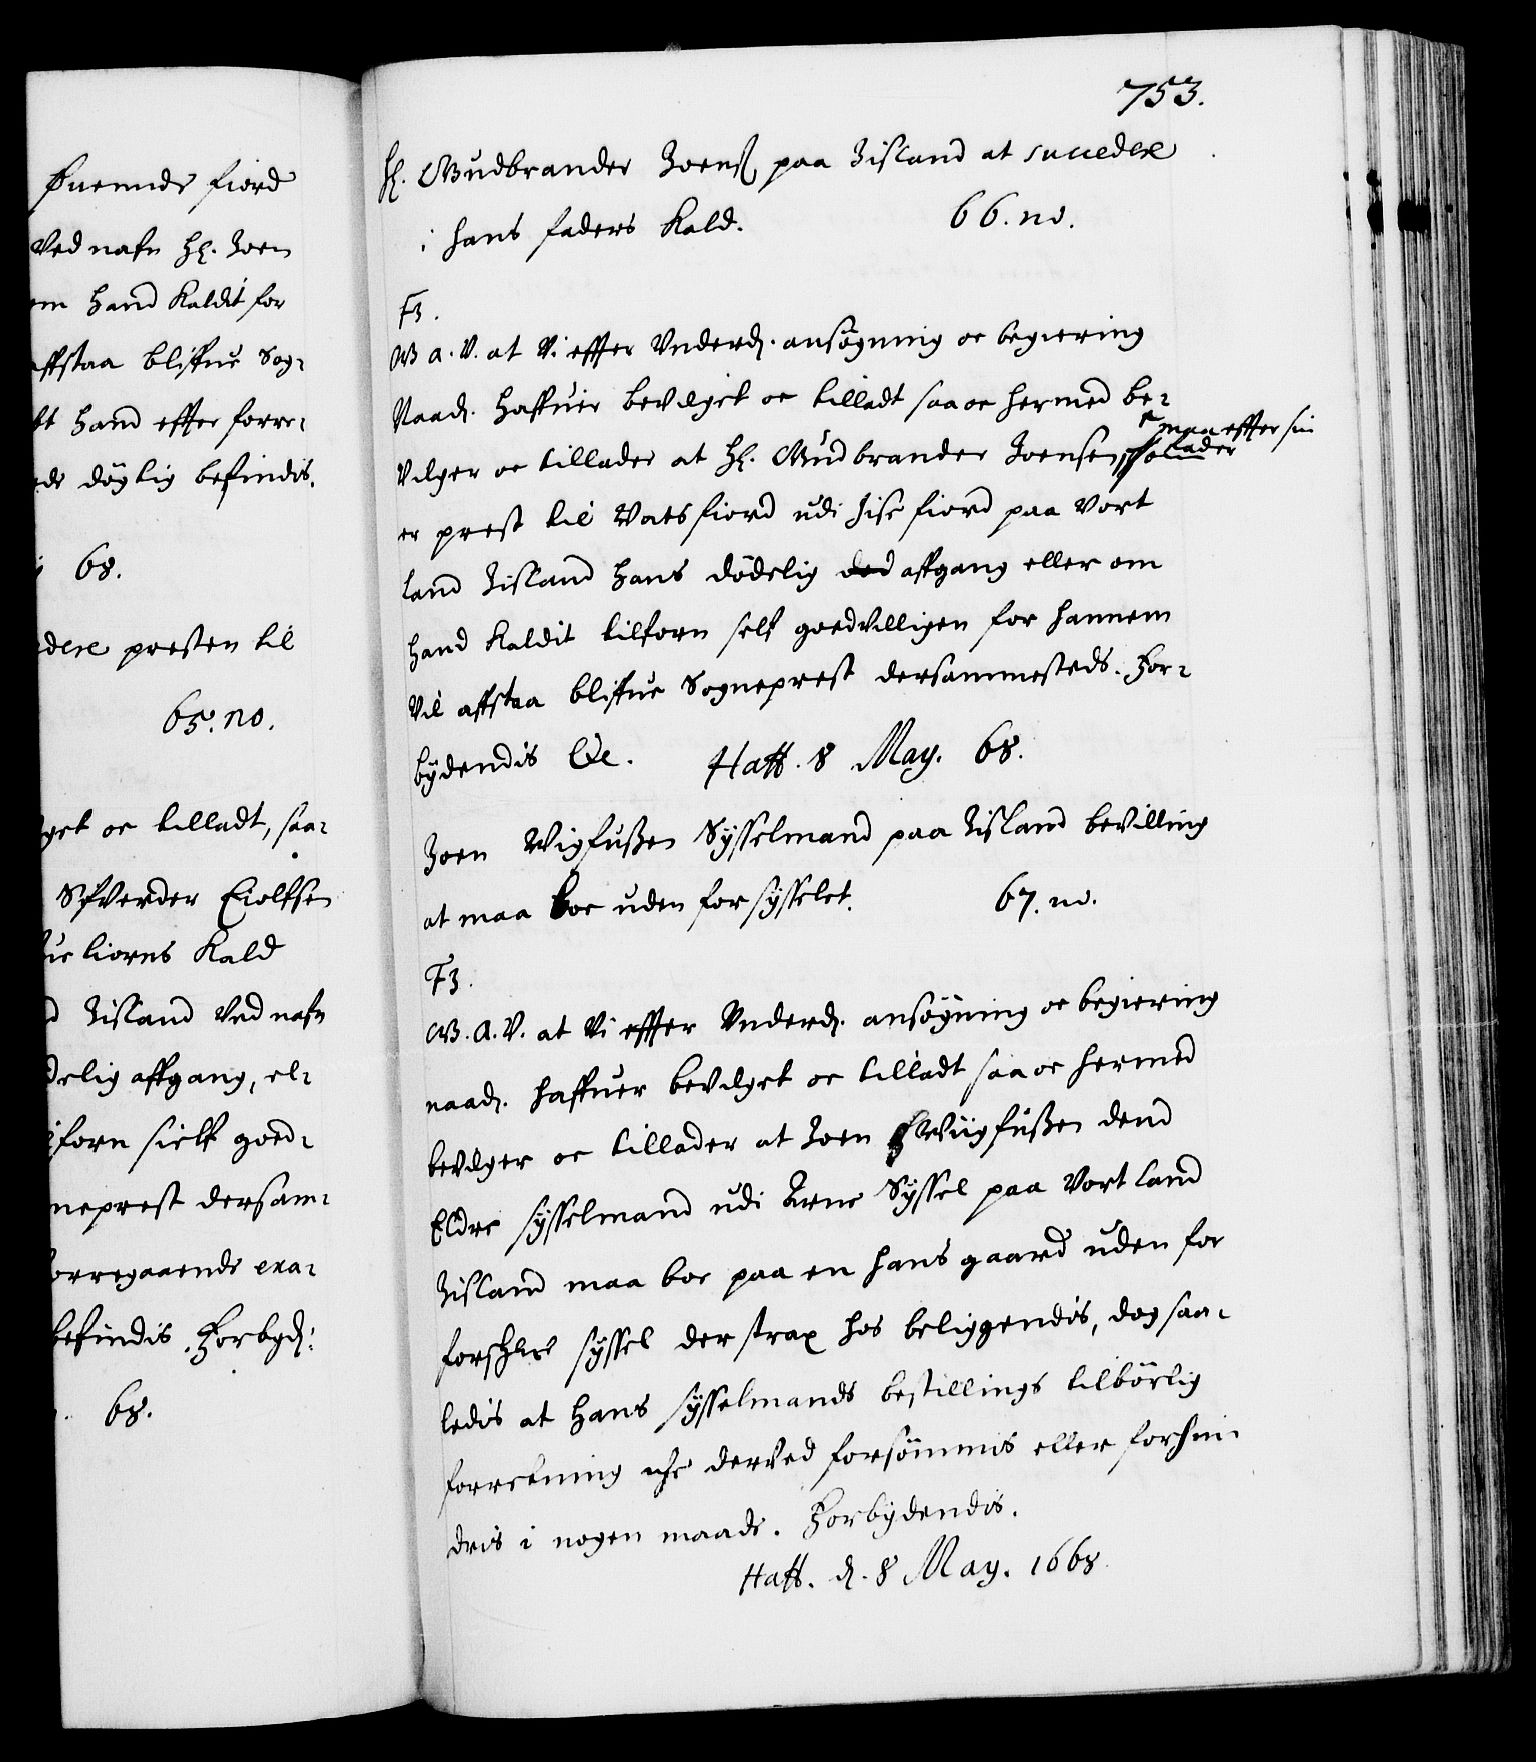 Ønunds fiord
ved nafn Hr. Joen
hand Kaldit for
affstaa bliffue Sog-
hand effter forre-
døgtig befindis.
68.
presten til
65. no.
oc tilladt, saa-
Sifverder Eiolfsen
tiorns Kald
Jisland ved nafn
delig affgang, el-
forn sielf goed-
neprest dersam-
orregaaende exa-
befindis. Forbyd:
68.
753.
Hr. Gudbrander Joens. paa Jisland at succedere
i hans faders Kald. 66. no.
F3.
G. A. V. at Vi effter Underd. ansøgning oc begiering
Naad. haffuer bevilget oc tilladt saa oc hermed be-
vilger oc tillader at Hr. Gudbrander Joensen, maa effter sin
fader
er prest til Vatsfiord udi Jisefiord paa vort
land Jisland hans dødelig ded affgang eller om
hand Kaldit tilforn self goedvilligen for hannem
vil affstaa bliffue Sogneprest dersammesteds. For-
bydendis &c. Haff. 8 May. 68.
Joen Wigfussen Sysselmand paa Jisland bevilling
at maa boe uden for sysselet. 67. no.
F3.
G. A. V. at Vi effter Underd. ansøgning oc begiering
naad. haffuer bevilget oc tilladt saa oc hermed
bevilger oc tillader at Joen Wiigfussen dend
Eldre sysselmand udi Arne Syssel paa vort land
Jisland maa boe paa en hans gaard uden for
forschrefne syssel der strax hos beliggendis, dog saa-
ledis at hans sysselmands bestillings tilbørlig
forretning iche derved forsømmis eller forhin-
dris i nogen maade. Forbydendis.
Haff. d. 8 May. 1668